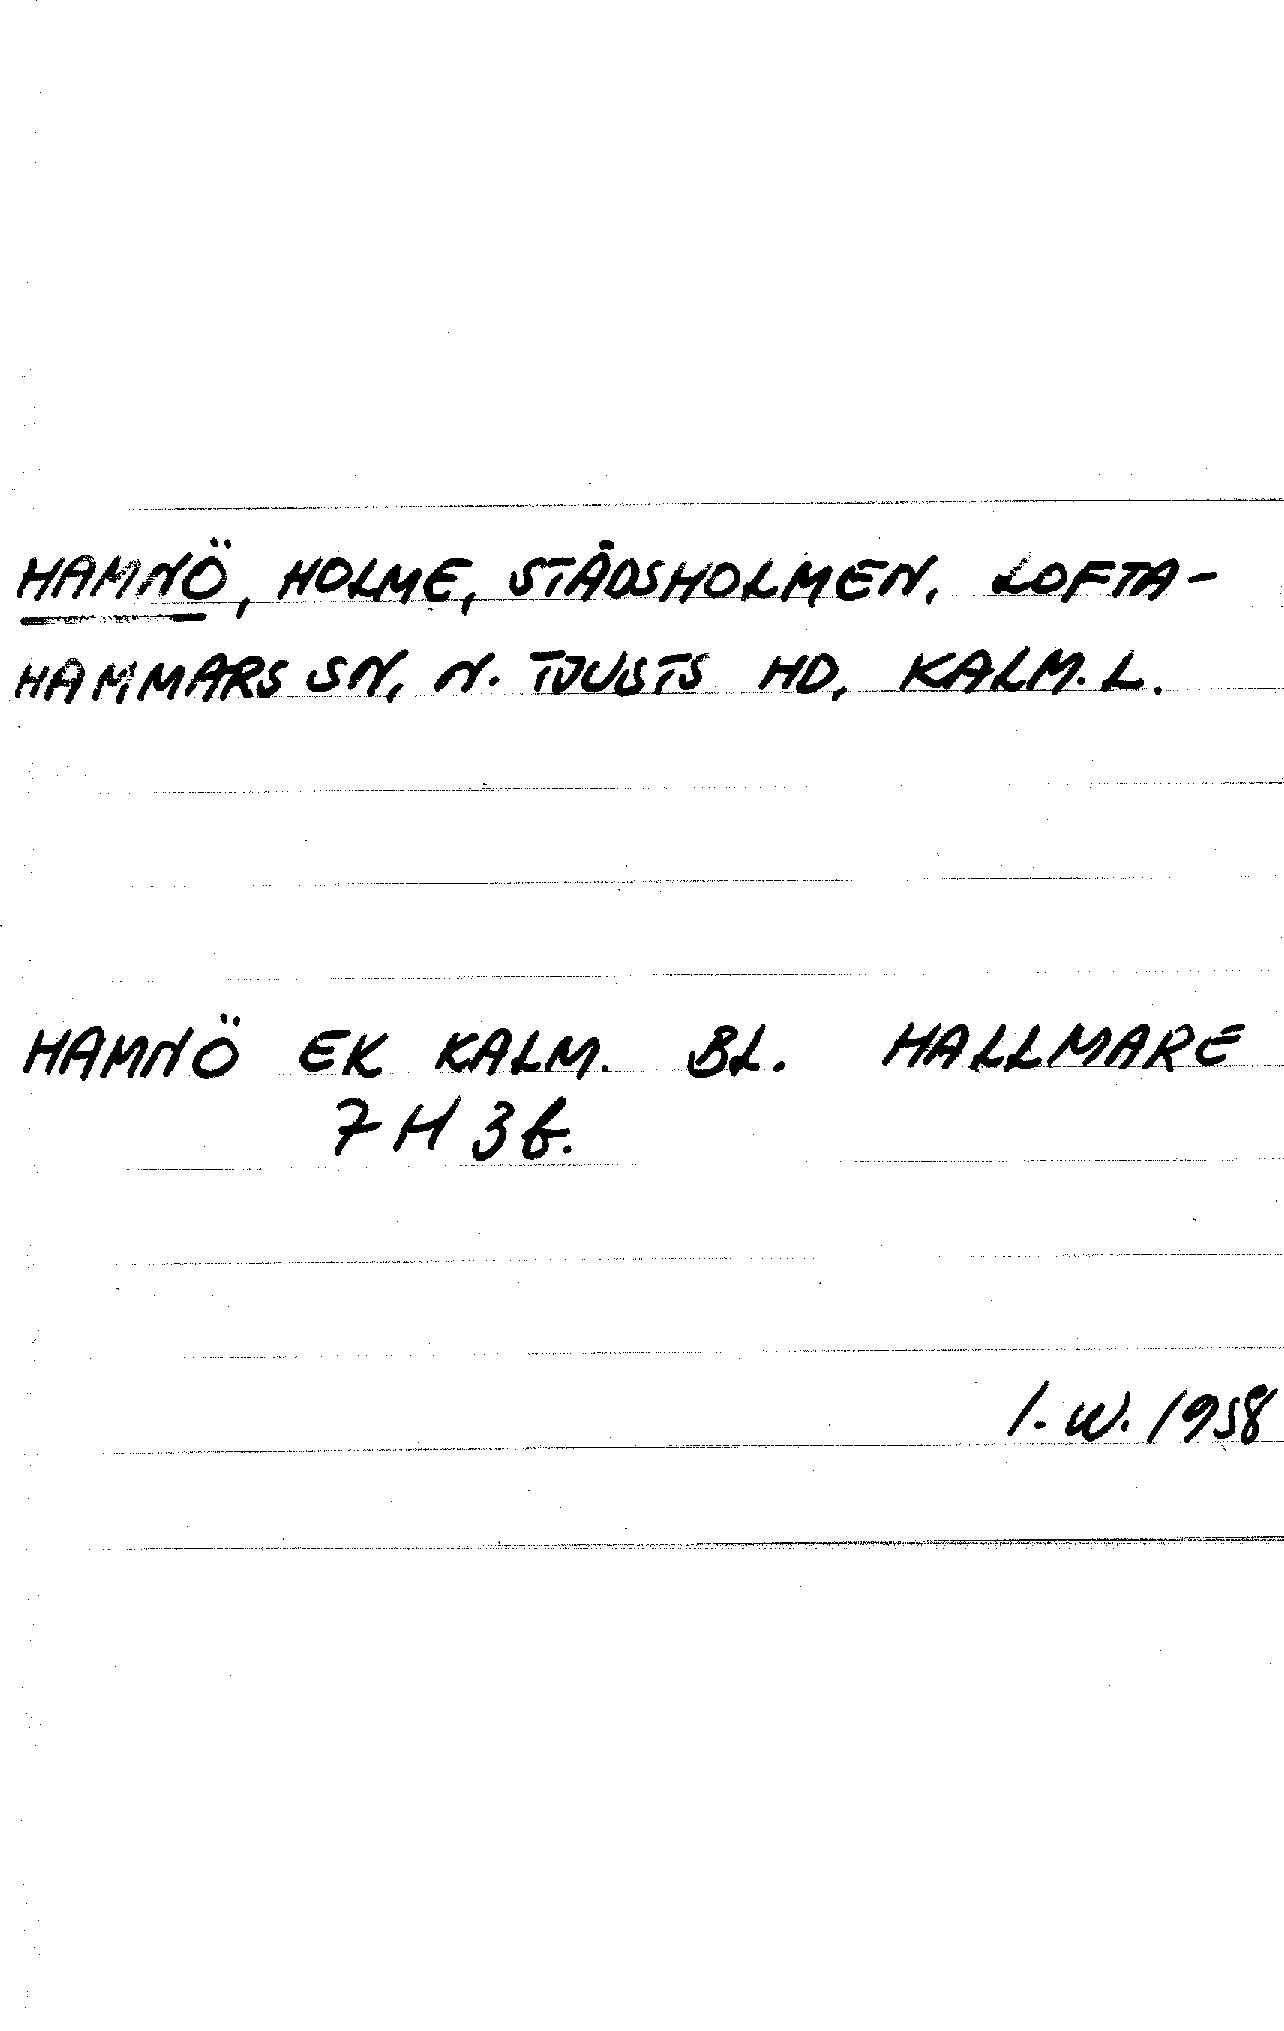 HAMNÖ, HOLME, STÅDSHOLMEN, LOFTA-
HAMMARS SN, N. TJUSTS HD, KALM. L.
HAMNÖ EK KALM. BL. HALLMARE
7 H 3 b.
I. W. 1958